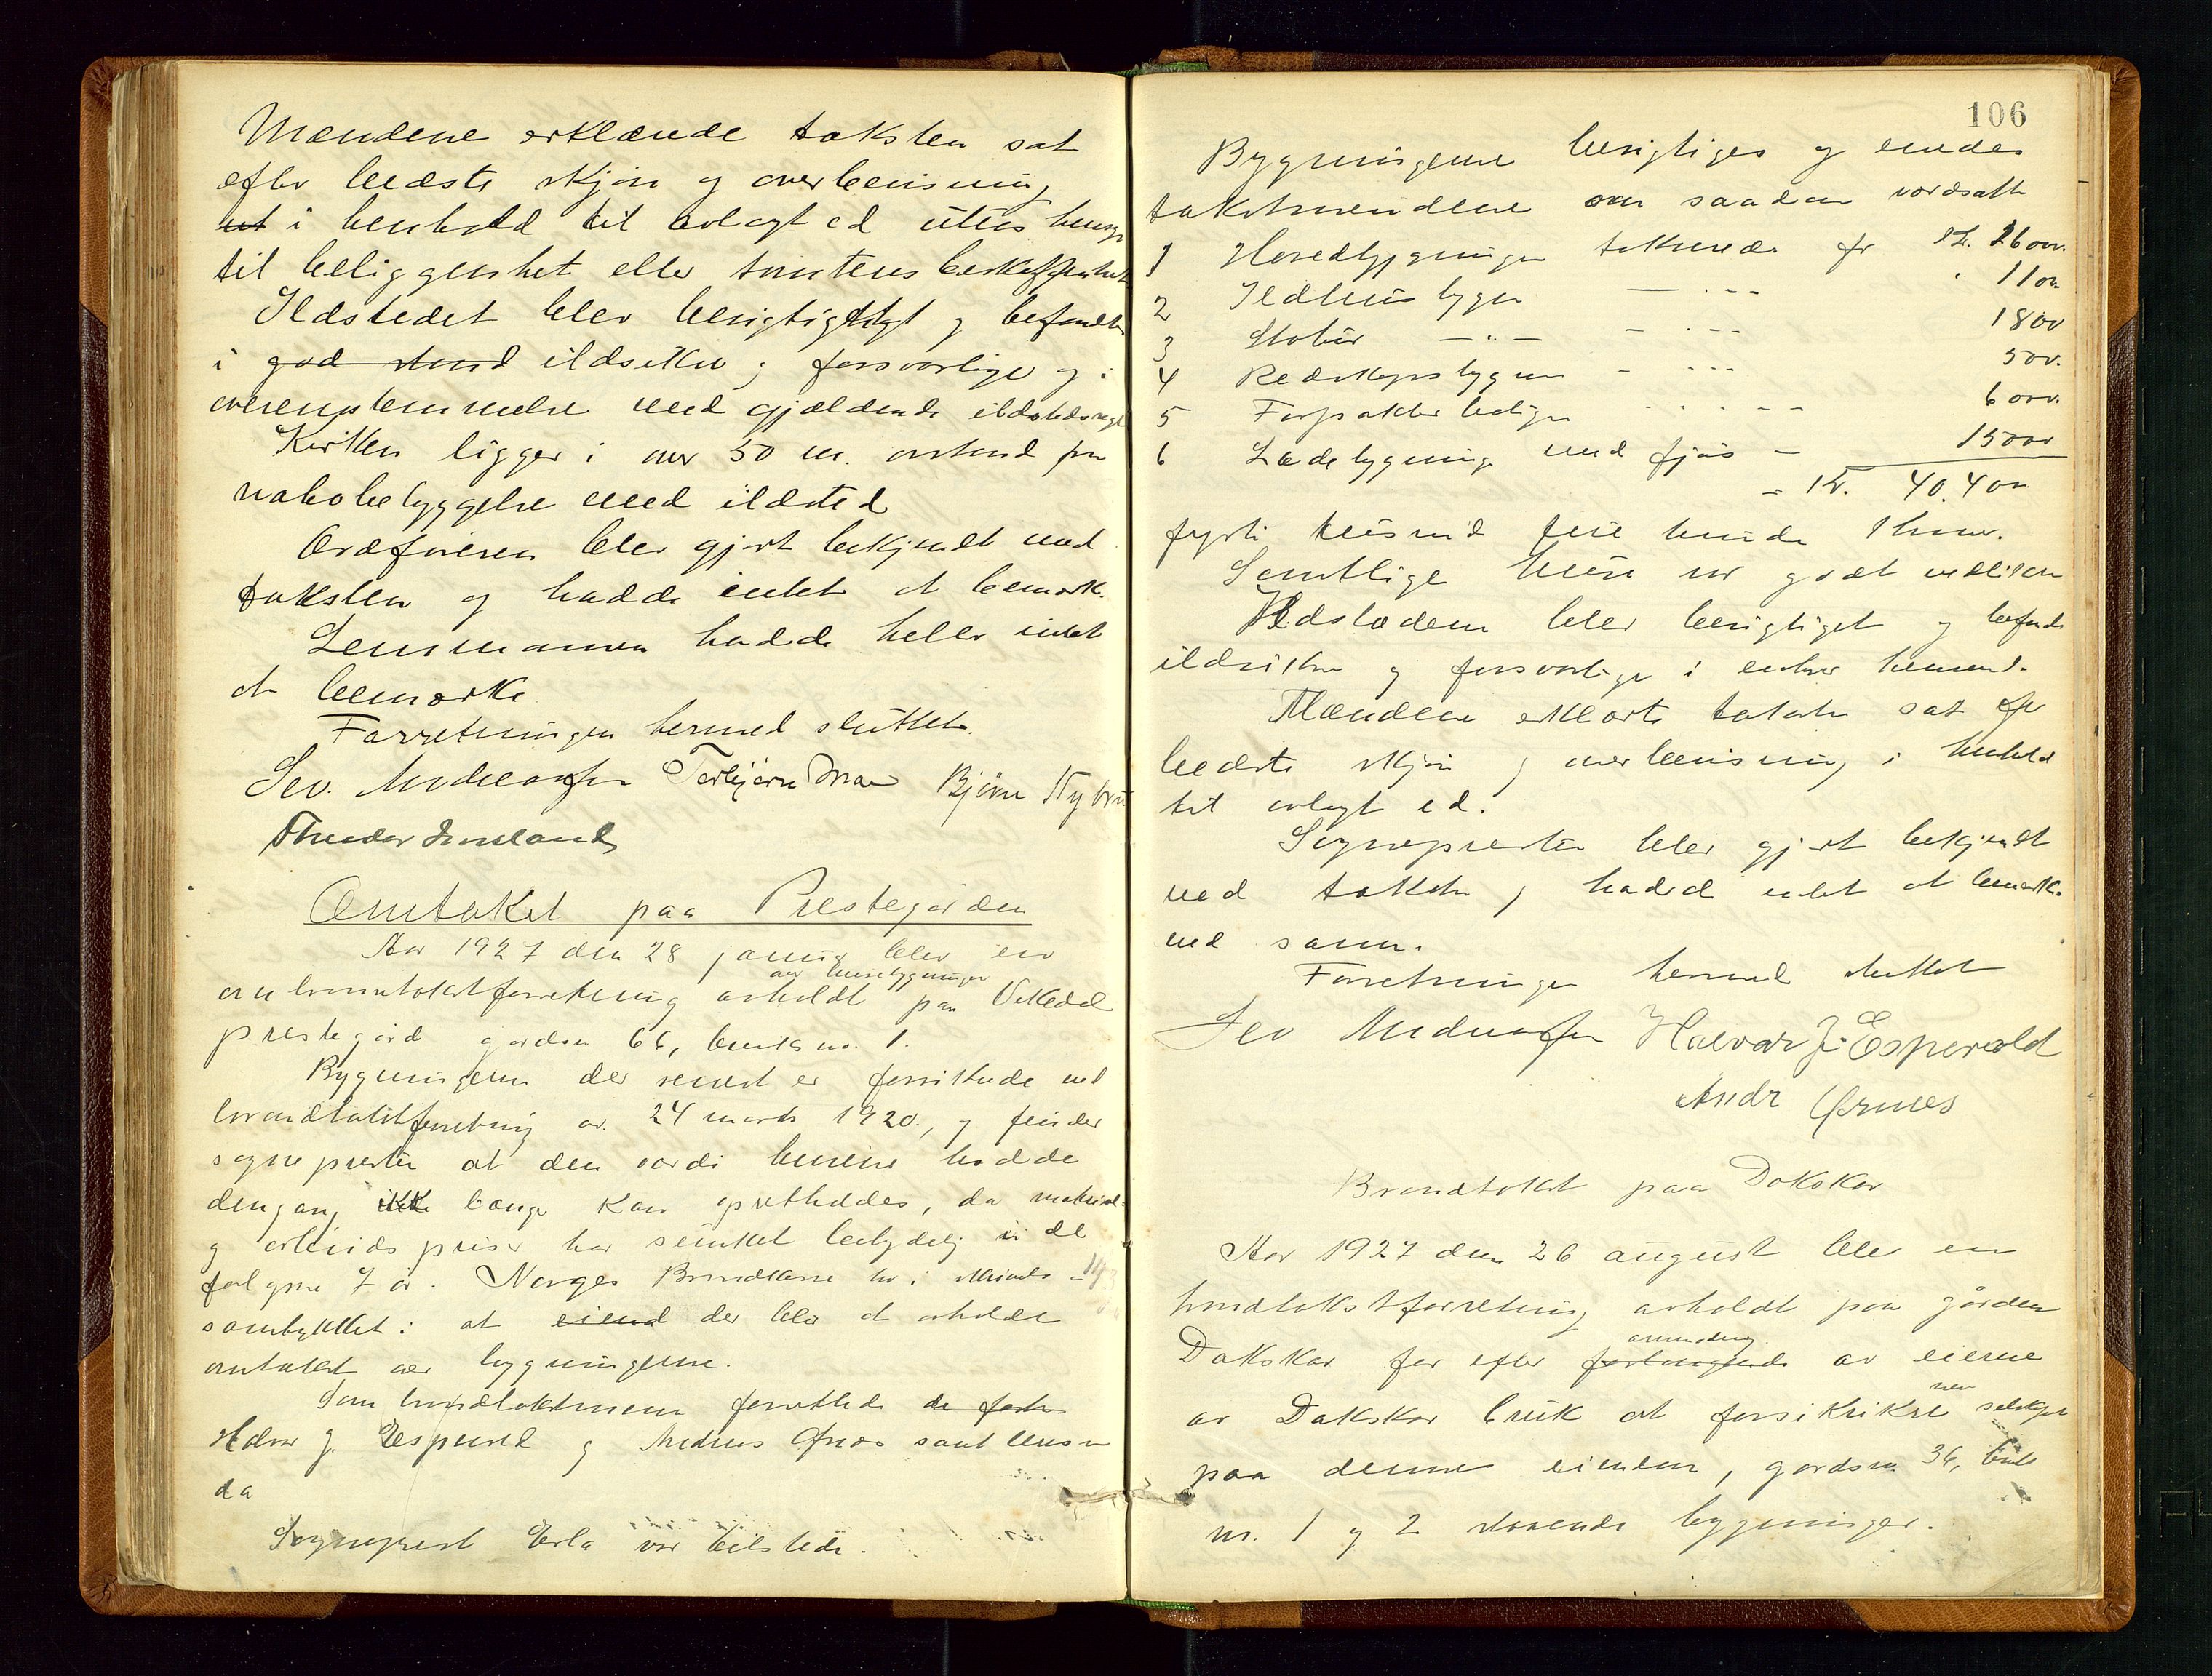 Mændene erklærede taksten sat
efter bedste skjøn og overbevisning
ut i henhold til avlagt ed uten hensyn
til beliggenhet eller tomtens beskaffenhet
Ildstedet blev besigtiget og befandtes
i god stand ildsiku og forsvarlige og i
overensstemmelse med gjældende ildstedsregl
Kirken ligger i over 50 m. avstand fra
nabobebyggelse med ildsted
Ordføreren blev gjort bekjendt med
taksten og hadde intet at bemerk.
Lensmannen hadde heller intet
at bemærke
Forretningen hermed sluttet.
Sev. Andreassen Torbjørn Bjørn Nybru
Theodor
Omtakst paa Prestegården
Aar 1927 den 28 blev en
over husebygninger
avholdt paa Vikedal
prestegård gårdsn 66, bruks no. 1.
Bygningerne der senest er forsikrede ved
brandtakstforretning av 24 marts 1920., og finder
sognepresten at den værdi husene hadde
dengang ikke længe kan opretholdes, da material-
og arbeids priser har sunket betydelig i de
følgene 7 år. Norges Brandkasse har i
samtykket i at eiend der blev at avholde
omtakst over bygningerne.
Som brandtakstmenn forrettede de faste
Halvar J. Espevold og Andreas Ørnes samt lensm
da
Sogneprest Erla var tilstede.
106
Bygningerne besigtiges og endes
takstmendene om saadan værdsatte
1 Hovedbygningen takserede for Kr. 16000.
2 Ildhusbygn 1100
3 Stabur 1800
4 Redskapsbygn 500.
5 Forpakterbolig 6000.
6 Ladebygning med fjøs 15000
= Kr. 40.400
fyrti tusind fire hundr Kroner.
Samtlige huse var godt vedlikeh
Ildstedene blev besigtiget og befunde
ildsikre og forsvarlige i enhver henseend.
Mændene erklærte taksten sat efter
bedste skjøn og overbevisning i henhold
til avlagt ed.
Sognepresten blev gjort bekjendt
med taksten og hadde intet at bemerke
ved samme.
Forretningen hermed sluttet
Sev Andreassen Halvar J. Espevold
Andr Ørnes
Brandtakst paa Dokskar
Aar 1927 den 26 august blev en
brandtakstforretning avholdt paa gården
anmodning
Dakskar for efter forlangende av eierne
av Dakskar bruk at forsikrikre selskapet
paa denne eiendom, gårdsn. 36, bruks
nr. 1 og 2 staaende bygninger.